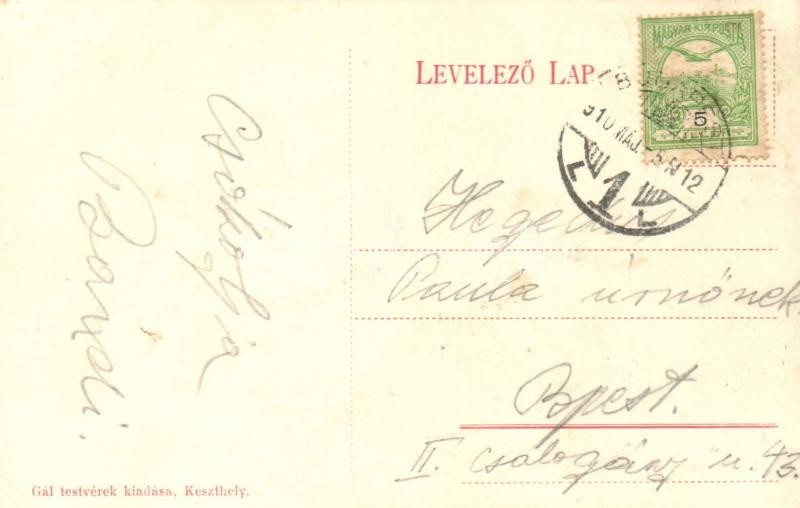 LEVELEZŐ LAP
MAGYAR KIR. POSTA
5
910 MÁJ. -5 N 12
1
L L
Csókolja
Bandi.
Hegedüs
Paula úrnőnek
Bpest.
II. csalogány u. 43.
Gál testvérek kiadása, Keszthely.